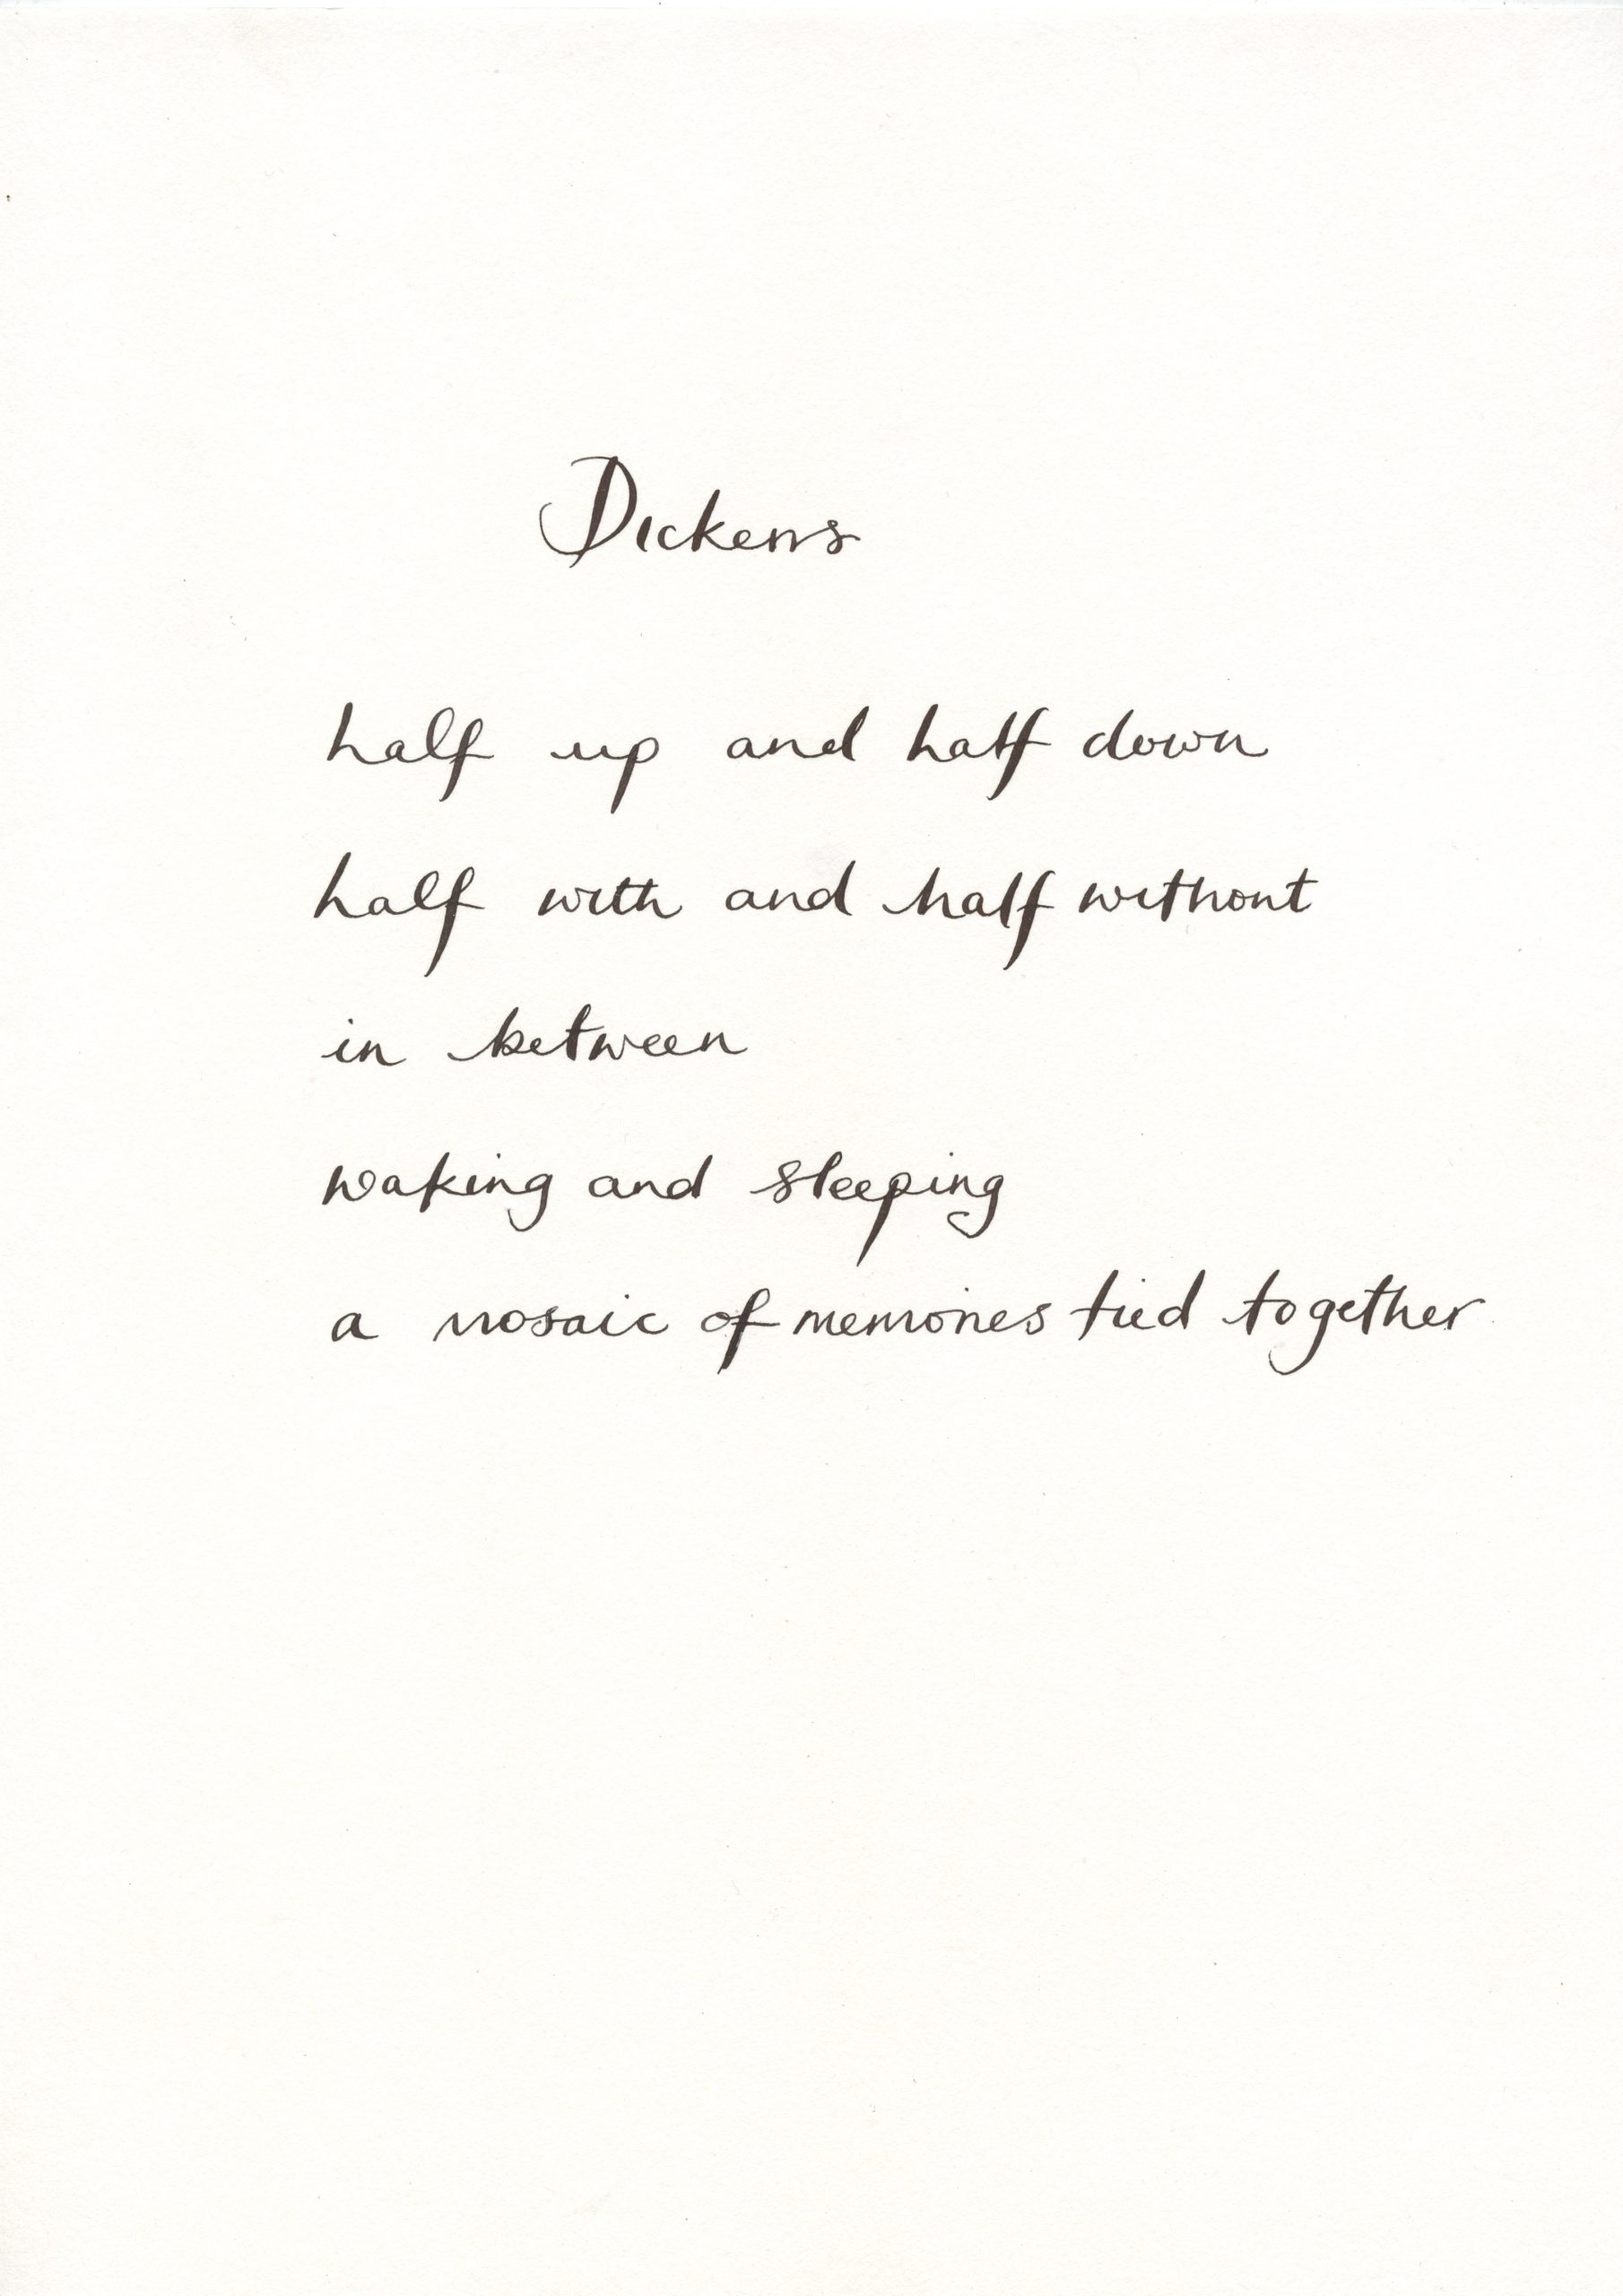 Dickens
half up and half down
half with and half without
in between
waking and sleeping
a mosaic of memories tied together